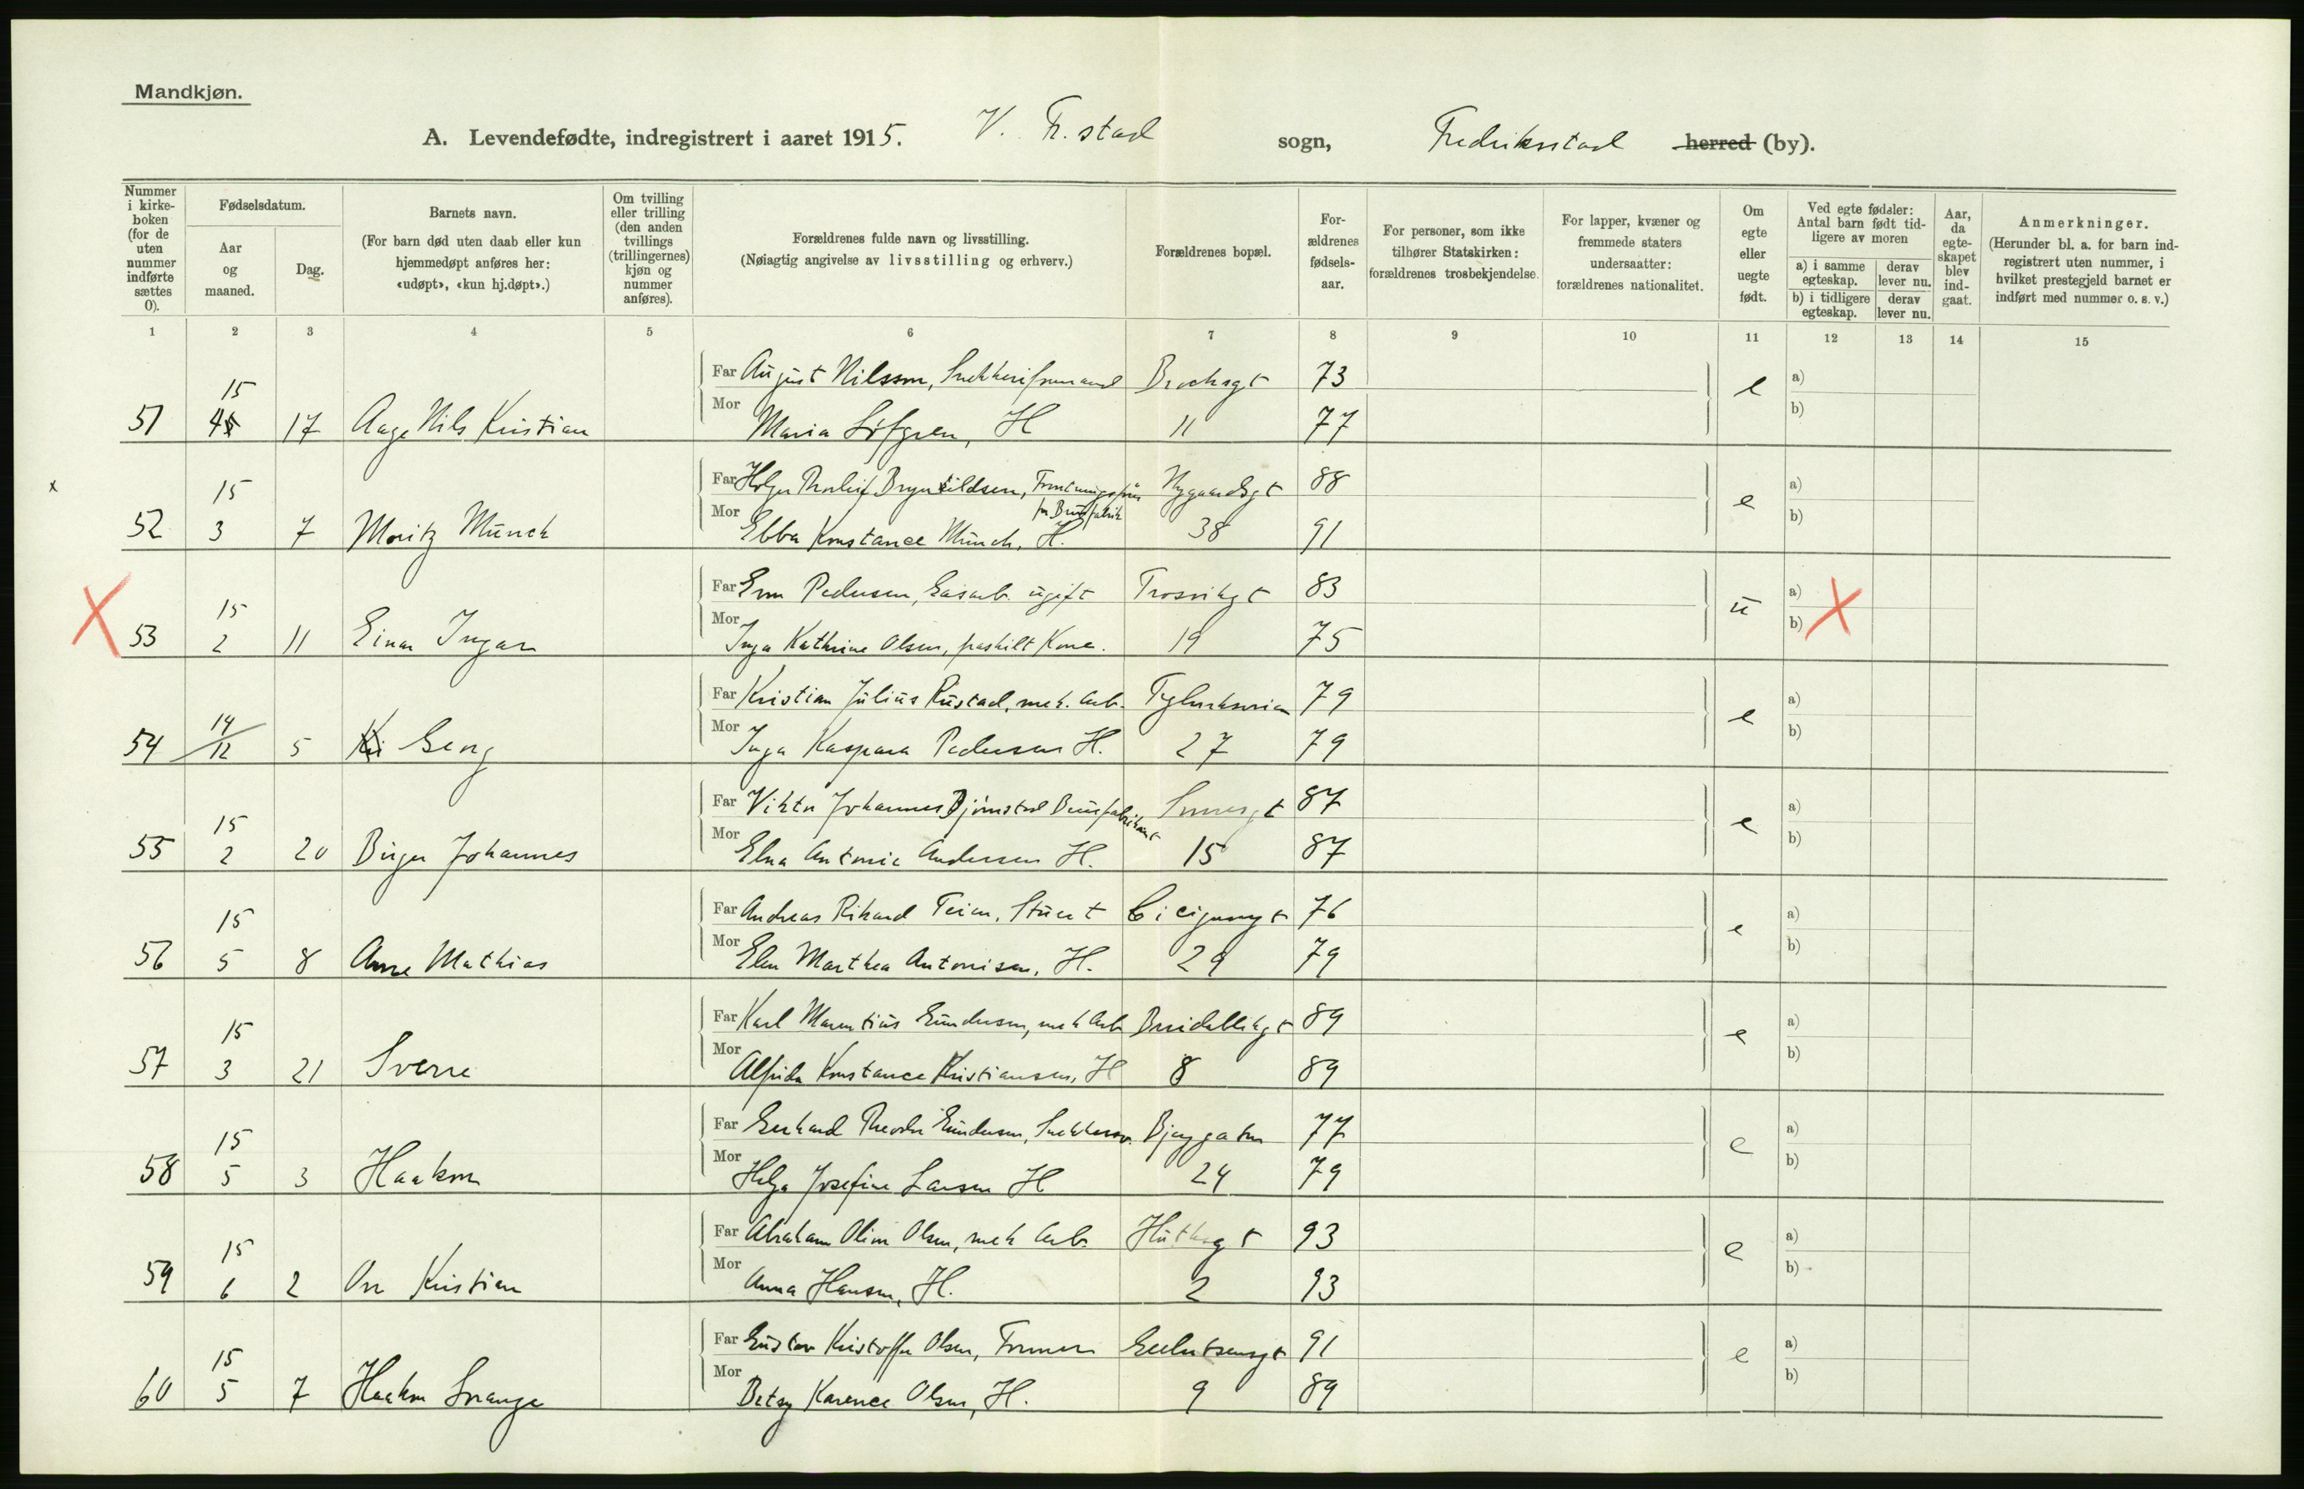 Mandkjøn.
A. Levendefødte, indregistrert i aaret 1915. V. Fr.stad sogn, Fredriksstad herred (by).
Nummer i kirke-boken (for de uten nummer indførte sættes 0).
Fødselsdatum.
Aar og maaned.
Dag.
Barnets navn.
(For barn død uten daab eller kun hjemmedøpt anføres her: «udøpt», «kun hj.døpt».)
Om tvilling eller trilling (den anden tvillings (trillingernes) kjøn og nummer anføres).
Forældrenes fulde navn og livsstilling.
(Nøiagtig angivelse av livsstilling og erhverv.)
Forældrenes bopæl.
For-ældrenes fødsels-aar.
For personer, som ikke tilhører Statskirken: forældrenes trosbekjendelse.
For lapper, kvæner og fremmede staters undersaatter: forældrenes nationalitet.
Om egte eller uegte født.
Ved egte fødsler: Antal barn født tid-ligere av moren
a) i samme egteskap.
derav lever nu.
b) i tidligere egteskap.
derav lever nu.
Aar, da egte-skapet blev ind-gaat.
Anmerkninger.
(Herunder bl. a. for barn ind-registrert uten nummer, i hvilket prestegjeld barnet er indført med nummer o. s. v.)
1 2 3 4 5 6 7 8 9 10 11 12 13 14 15
15 Far August Nilsson, Brochsgt 73 e a)
51 4 17 Aage Nils Kristian Mor Maria Löfgren, H 11 77 b)
x 15 Far Holger Thorleif Brynildsen, Nygaardsgt 88 e a)
52 3 7 Moritz Münch Mor Ebba Konstance Münch, H. 38 91 b)
X 15 Far Pedersen, ugift Trosvikgt 83 u a) X
53 2 11 Einar Ingar Mor Inga Kathrine Olsen, fraskilt Kone. 19 75 b)
14 Far Kristian Julius Rustad, mek. Arb. 79 e a)
54 12 5 Georg Mor Inga Kaspara Pedersen H. 27 79 b)
15 Far Viktor Johannes Bjørnstad 87 e a)
55 2 20 Birger Johannes Mor Elna Antonie Andersen H. 15 87 b)
15 Far Andreas Rikard 76 e a)
56 5 8 Arne Mathias Mor Elen Marthea Antonisen, H. 29 79 b)
15 Far Karl Marentius Gundersen, mek Arb 89 e a)
57 3 21 Sverre Mor Alfrida Konstance Kristiansen, H 8 89 b)
15 Far Gerhard Theodor Gundersen, 77 e a)
58 5 3 Haakon Mor Helga Josefine Larsen H 24 79 b)
15 Far Abraham Oliver Olsen, mek Arb. 93 e a)
59 6 2 Kristian Mor Anna Hansen, H. 2 93 b)
15 Far Gustav Kristoffer Olsen, Former 91 e a)
60 5 7 Haakon Mor Betsy Karence Olsen, H. 9 89 b)